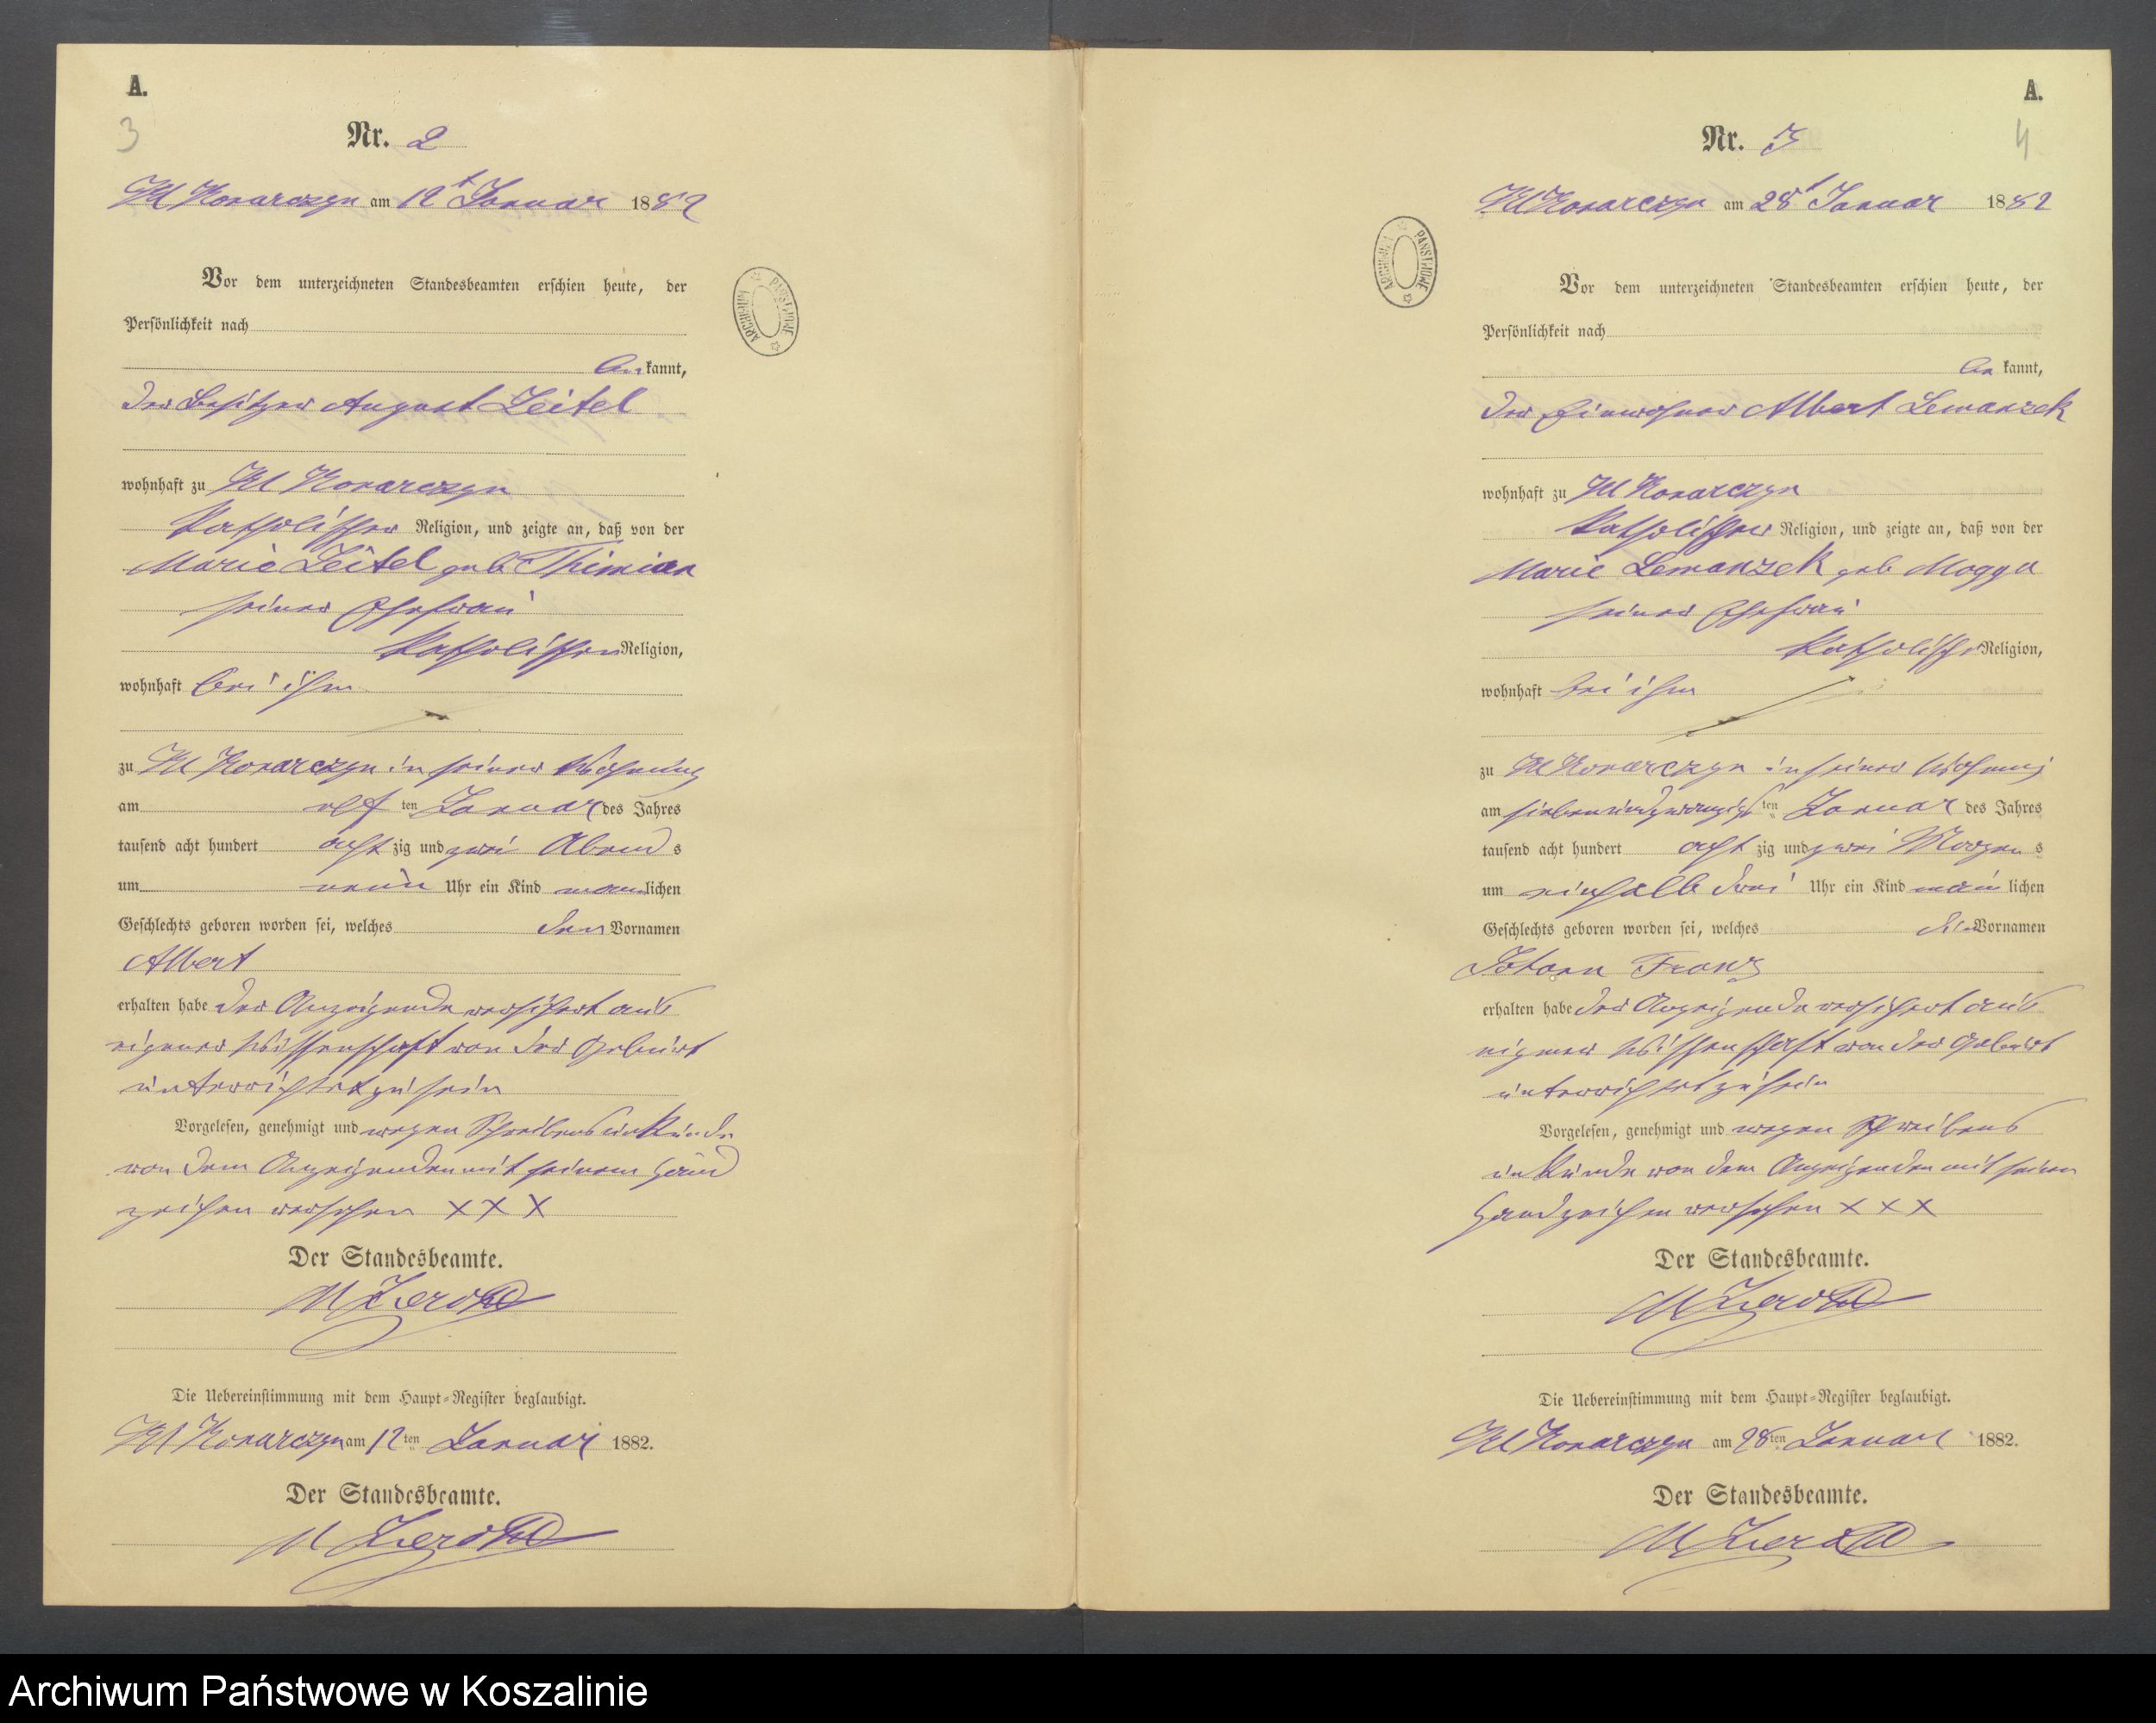 A.
3
Nr. 2
Kl Konarczyn am 12t Januar 1882
Vor dem unterzeichneten Standesbeamten erschien heute, der
Persönlichkeit nach
be kannt,
der Besitzer August Zeitel
wohnhaft zu Kl Konarczyn
katholischer Religion, und zeigte an, daß von der
Marie Zeitel geb Thimian
seiner Ehefrau
katholischen Religion,
wohnhaft bei ihm
zu Kl Konarczyn in seiner Wohnung
am elf ten Januar des Jahres
tausend acht hundert acht zig und zwei Abend s
um neun Uhr ein Kind männlichen
Geschlechts geboren worden sei, welches den Vornamen
Albert
erhalten habe der Anzeigende versichert aus
eigener Wissenschaft von der Geburt
unterrichtet zu sein
Vorgelesen, genehmigt und wegen Schreibensunkunde
von dem Anzeigenden mit seinem Hand
zeichen versehen X X X
Der Standesbeamte.
Die Uebereinstimmung mit dem Haupt-Register beglaubigt.
Kl Konarczyn am 12ten Januar 1882.
Der Standesbeamte.
ARCHIWUM PAŃSTWOWE
A.
4
Nr. 3
Kl Konarczyn am 28t Januar 1882
Vor dem unterzeichneten Standesbeamten erschien heute, der
Persönlichkeit nach
be kannt,
der Einwohner Albert Lemanzek
wohnhaft zu Kl Konarczyn
katholischer Religion, und zeigte an, daß von der
Marie Lemanzek geb Mogga
seiner Ehefrau
katholische Religion,
wohnhaft bei ihm
zu Kl Konarczyn in seiner Wohnung
am siebenundzwanzigs ten Januar des Jahres
tausend acht hundert acht zig und zwei Morgen s
um einhalb drei Uhr ein Kind männ lichen
Geschlechts geboren worden sei, welches die Vornamen
Johann Franz
erhalten habe der Anzeigende versichert aus
eigener Wissenschaft von der Geburt
unterrichtet zu sein
Vorgelesen, genehmigt und wegen Schreibens
unkunde von dem Anzeigenden mit seinem
Handzeichen versehen X X X
Der Standesbeamte.
Die Uebereinstimmung mit dem Haupt-Register beglaubigt.
Kl Konarczyn am 28ten Januar 1882.
Der Standesbeamte.
ARCHIWUM PAŃSTWOWE
Archiwum Państwowe w Koszalinie